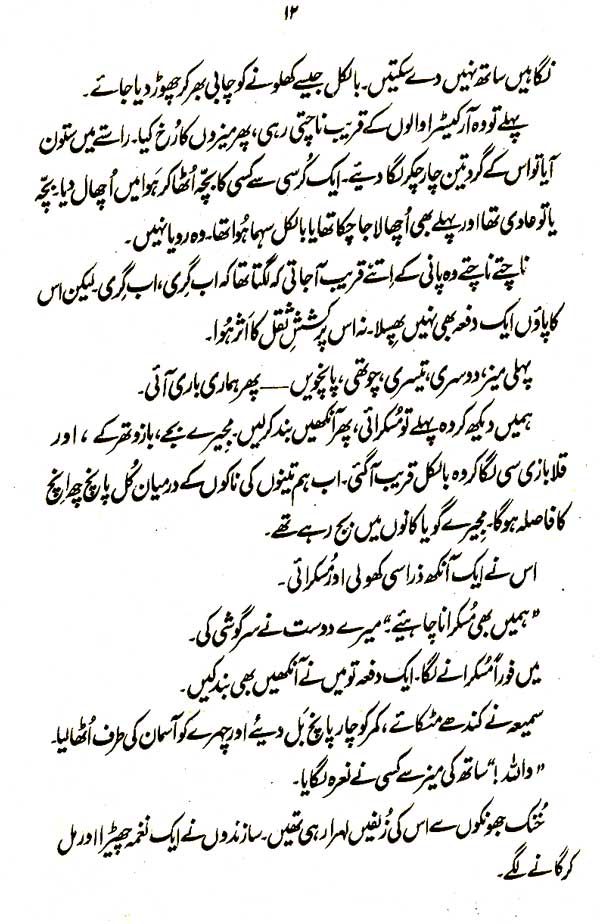 ۱۲
نگاہیں ساتھ نہیں دے سکتیں۔ بالکل جیسے کھلونے کو چابی بھر کر چھوڑ دیا جائے۔
پہلے تو وہ آرکیسٹرا والوں کے قریب ناچتی رہی، پھر میزوں کا رُخ کیا۔ راستے میں ستون
آیا تو اس کے گرد تین چار چکر لگا دیئے۔ ایک کُرسی سے کسی کا بچّہ اُٹھا کر ہَوا میں اُچھال دیا۔ بچّہ
یا تو عادی تھا اور پہلے بھی اُچھالا جا چکا تھا یا بالکل سہما ہُوا تھا۔ وہ رویا نہیں۔
ناچتے ناچتے وہ پانی کے اتنے قریب آ جاتی کہ لگتا تھا کہ اب گِری، اب گِری۔ لیکن اس
کا پاؤں ایک دفعہ بھی نہیں پھسلا۔ نہ اس پر کششِ ثقل کا اثر ہُوا۔
پہلی میز، دوسری، تیسری، چوتھی، پانچویں — پھر ہماری باری آئی۔
ہمیں دیکھ کر وہ پہلے تو مُسکرائی، پھر آنکھیں بند کر لیں۔ مجیرے بجے، بازو تھرکے، اور
قلابازی سی لگا کر وہ بالکل قریب آ گئی۔ اب ہم تینوں کی ناکوں کے درمیان کُل پانچ چھ انچ
کا فاصلہ ہوگا۔ مجیرے گویا کانوں میں بج رہے تھے۔
اس نے ایک آنکھ ذرا سی کھولی اور مُسکرائی۔
”ہمیں بھی مُسکرانا چاہیئے۔“ میرے دوست نے سرگوشی کی۔
میں فوراً مُسکرانے لگا۔ ایک دفعہ تو میں نے آنکھیں بھی بند کیں۔
سمیعہ نے کندھے مٹکائے، کمر کو چار پانچ بَل دیئے اور چہرے کو آسمان کی طرف اُٹھا لیا۔
”واللہ!“ ساتھ کی میز سے کسی نے نعرہ لگایا۔
خُنک جھونکوں سے اس کی زُلفیں لہرا رہی تھیں۔ سازندوں نے ایک نغمہ چھیڑا اور مل
کر گانے لگے۔